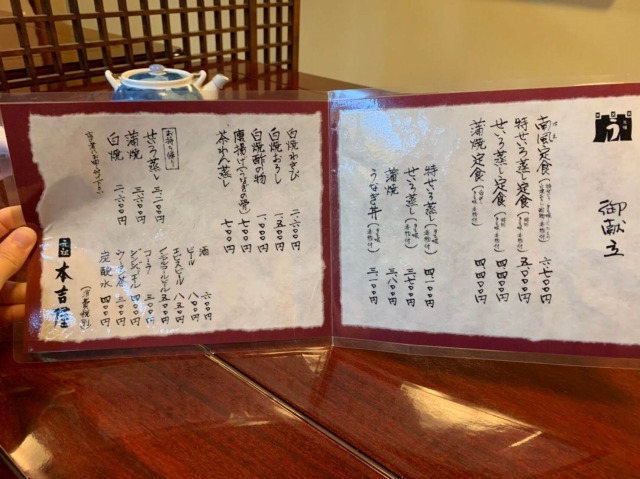 御献立
南風定食
六七〇〇円
特せいろ蒸し定食
五、〇〇〇円
せいろ蒸し定食
四四〇〇円
蒲焼定食
四四〇〇円
特せいろ蒸し
四一〇〇円
せいろ蒸し
三七〇〇円
蒲焼
三八〇〇円
うなぎ丼
三一〇〇円
白焼わさび
二六〇〇円
白焼おろし
一五〇〇円
白焼酢の物
一〇〇〇円
唐揚げ(うなぎの骨)
七〇〇円
茶わん蒸し
七〇〇円
お持ち帰り
せいろ蒸し
三二〇〇円
蒲焼
三六〇〇円
白焼
二六〇〇円
酒
六〇〇円
ビール
八〇〇円
エビスビール
八五〇円
ノンアルコールビール
五〇〇円
コーラ
三〇〇円
ジンジャエール
三〇〇円
ウーロン茶
炭酸水
元祖 本吉屋